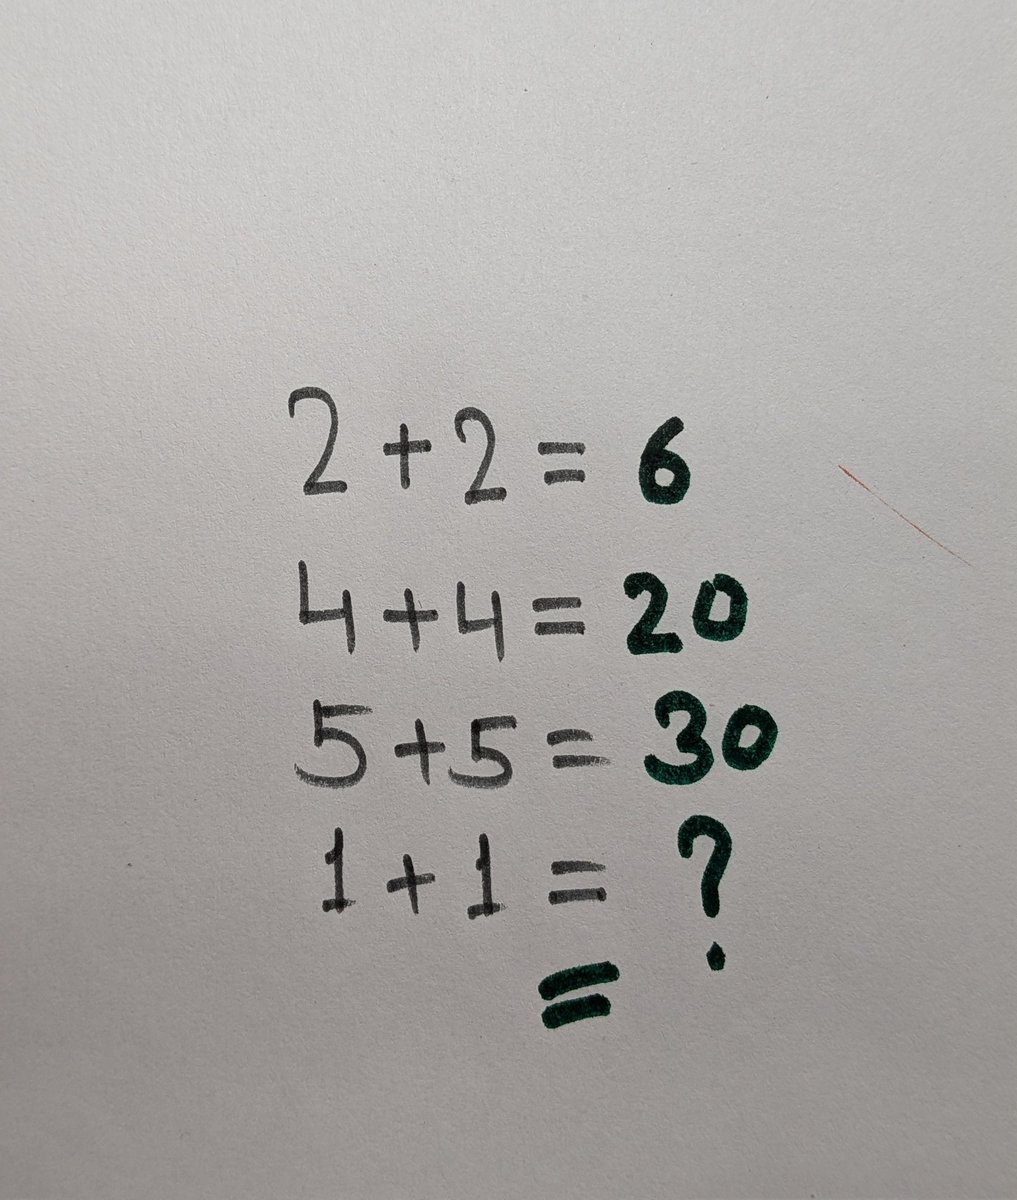 2 + 2 = 6
4 + 4 = 20
5 + 5 = 30
1 + 1 = ?
=